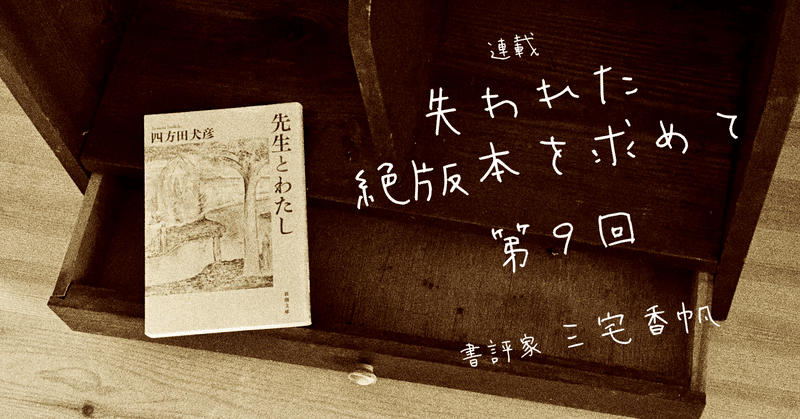 連載
失われた
絶版本を求めて
第9回
書評家 三宅香帆
四方田犬彦
先生とわたし
新潮文庫